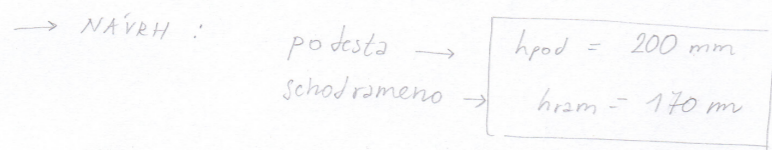 → NÁVRH :
podesta → hpod = 200 mm
schodrameno → hram = 170 m